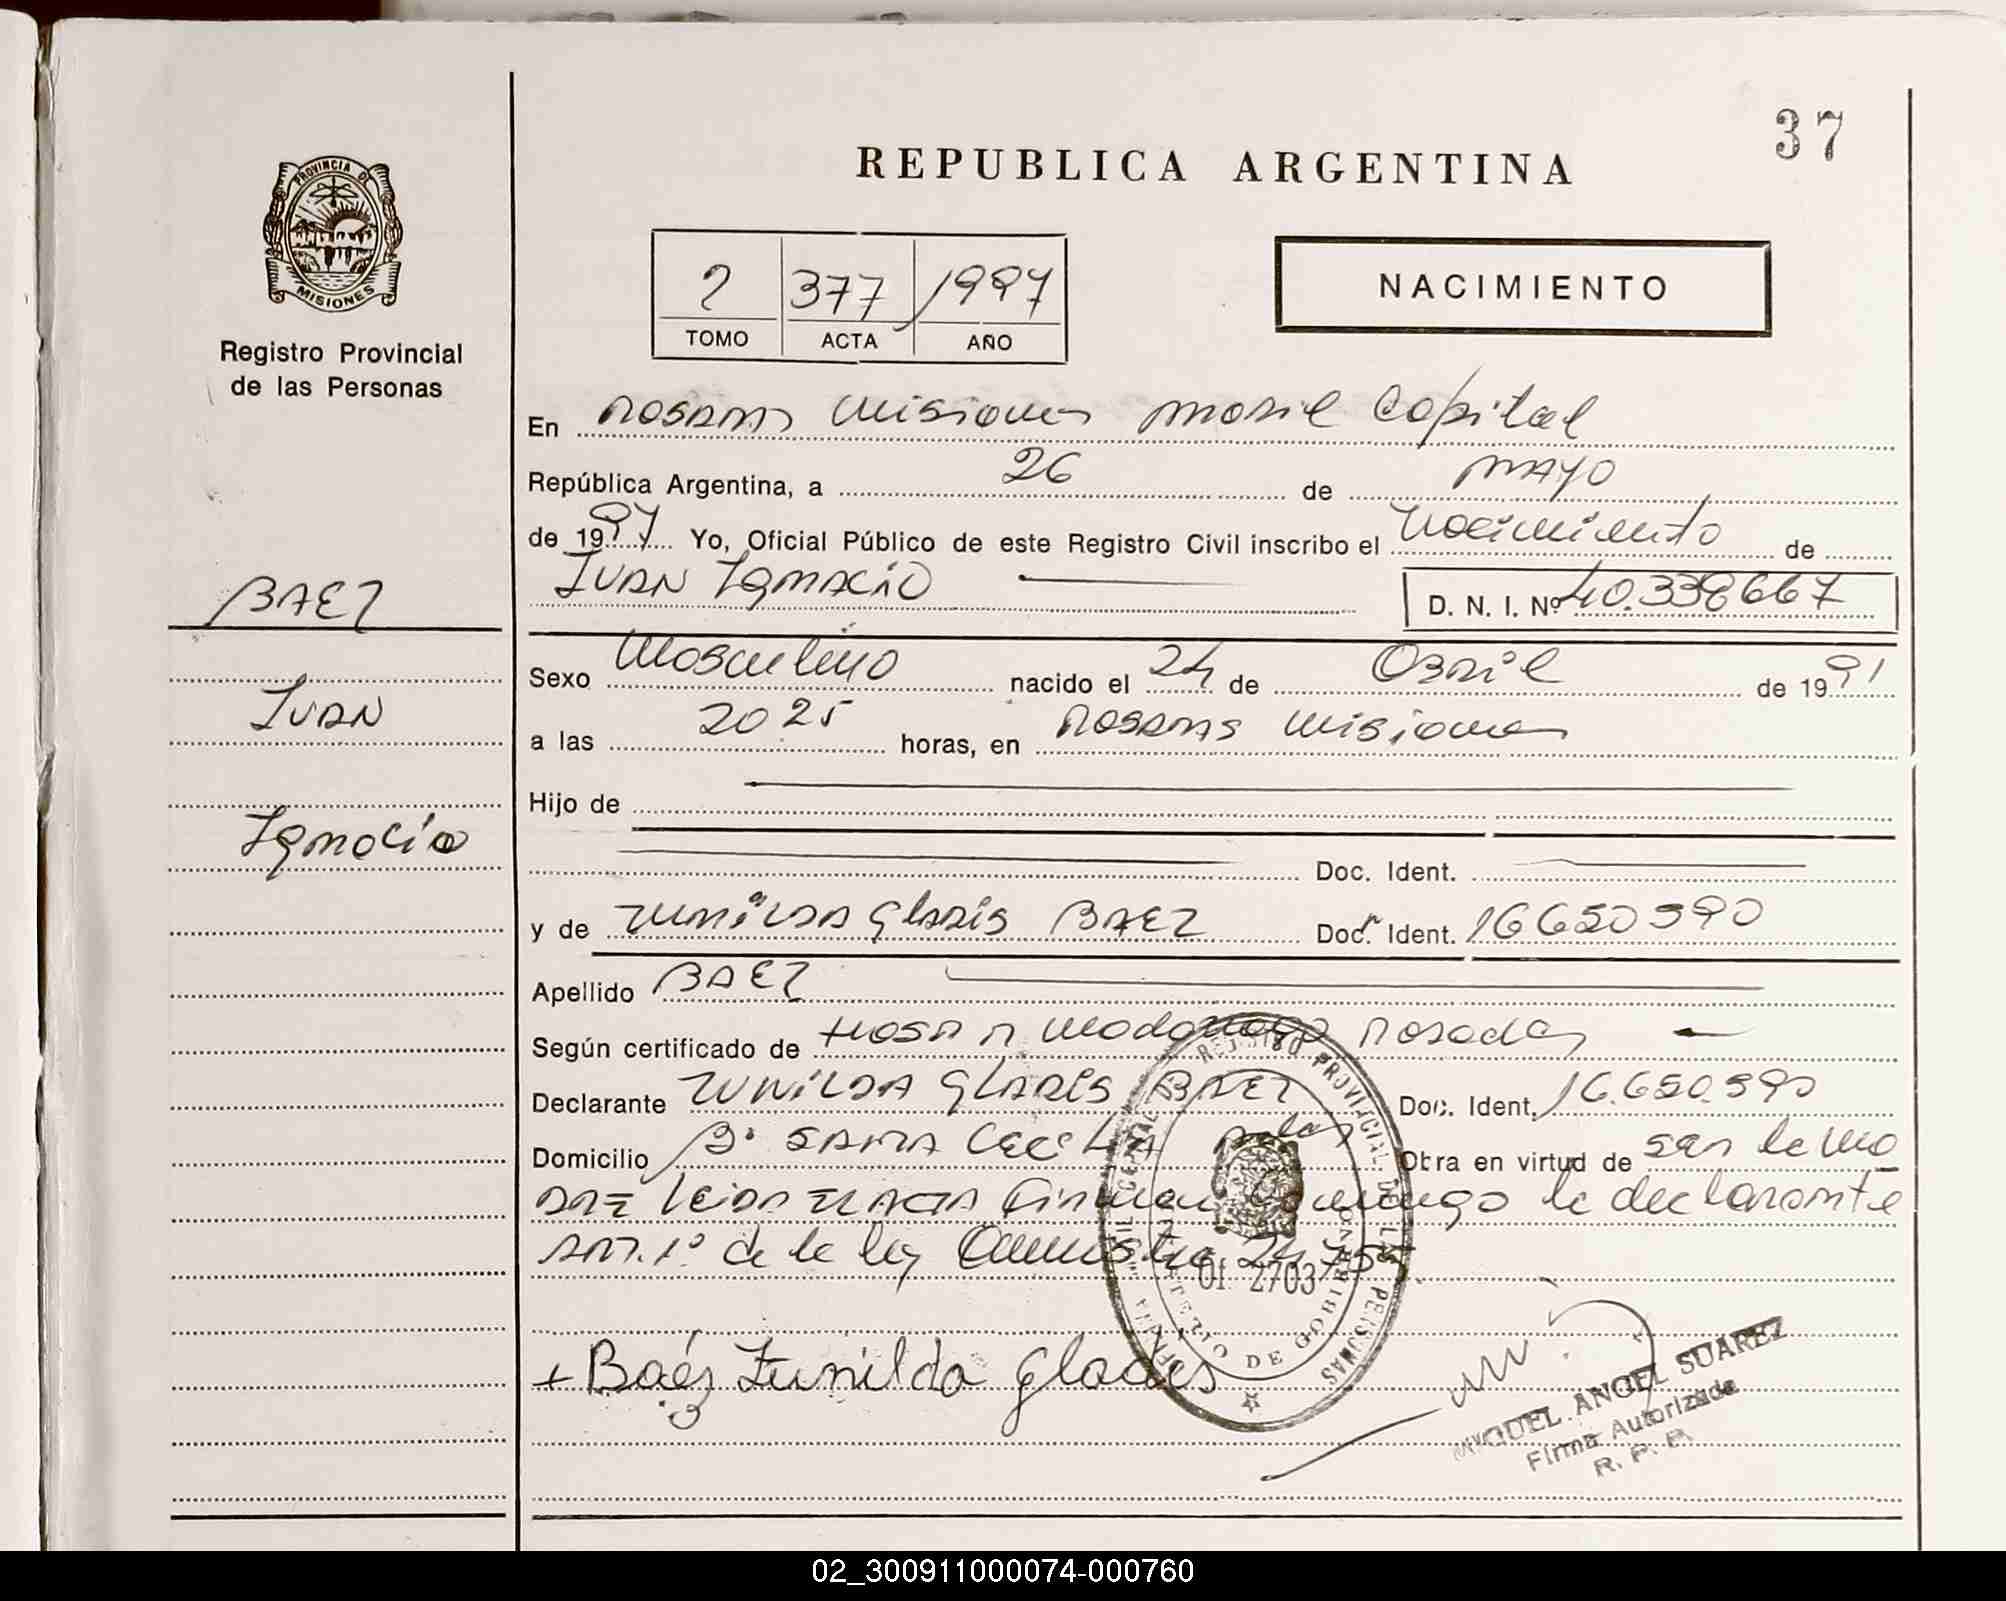 37
REPUBLICA ARGENTINA
PROVINCIA DE
MISIONES
Registro Provincial
de las Personas
2 377 1997
TOMO ACTA AÑO
NACIMIENTO
En Posadas Misiones Movil Capital
República Argentina, a 26 de MAYO
de 1997 Yo, Oficial Público de este Registro Civil inscribo el Nacimiento de
IVAN Ignacio D. N. I. Nº 40.338667
BAEZ
IVAN
Ignacio
Sexo Masculino nacido el 24 de Abril de 1991
a las 20 25 horas, en Posadas Misiones
Hijo de
Doc. Ident.
y de ZUNILDA Gladis BAEZ Doc. Ident. 16650590
Apellido BAEZ
Según certificado de Hosp R Madariaga Posadas
Declarante ZUNILDA GLADIS BAEZ Doc. Ident. 16.650.590
Domicilio Bº SANTA CECILIA Obra en virtud de ser la Ma
DRE leida EL ACTA Firman conmigo la declarante
ART. 1º de la ley Amnistia 24.755
REGISTRO PROVINCIAL DE LAS PERSONAS
MINISTERIO DE GOBIERNO
Of. 2703
+ Baéz Zunilda Glades
MIGUEL ANGEL SUAREZ
Firma Autorizada
R. P. P.
02_300911000074-000760